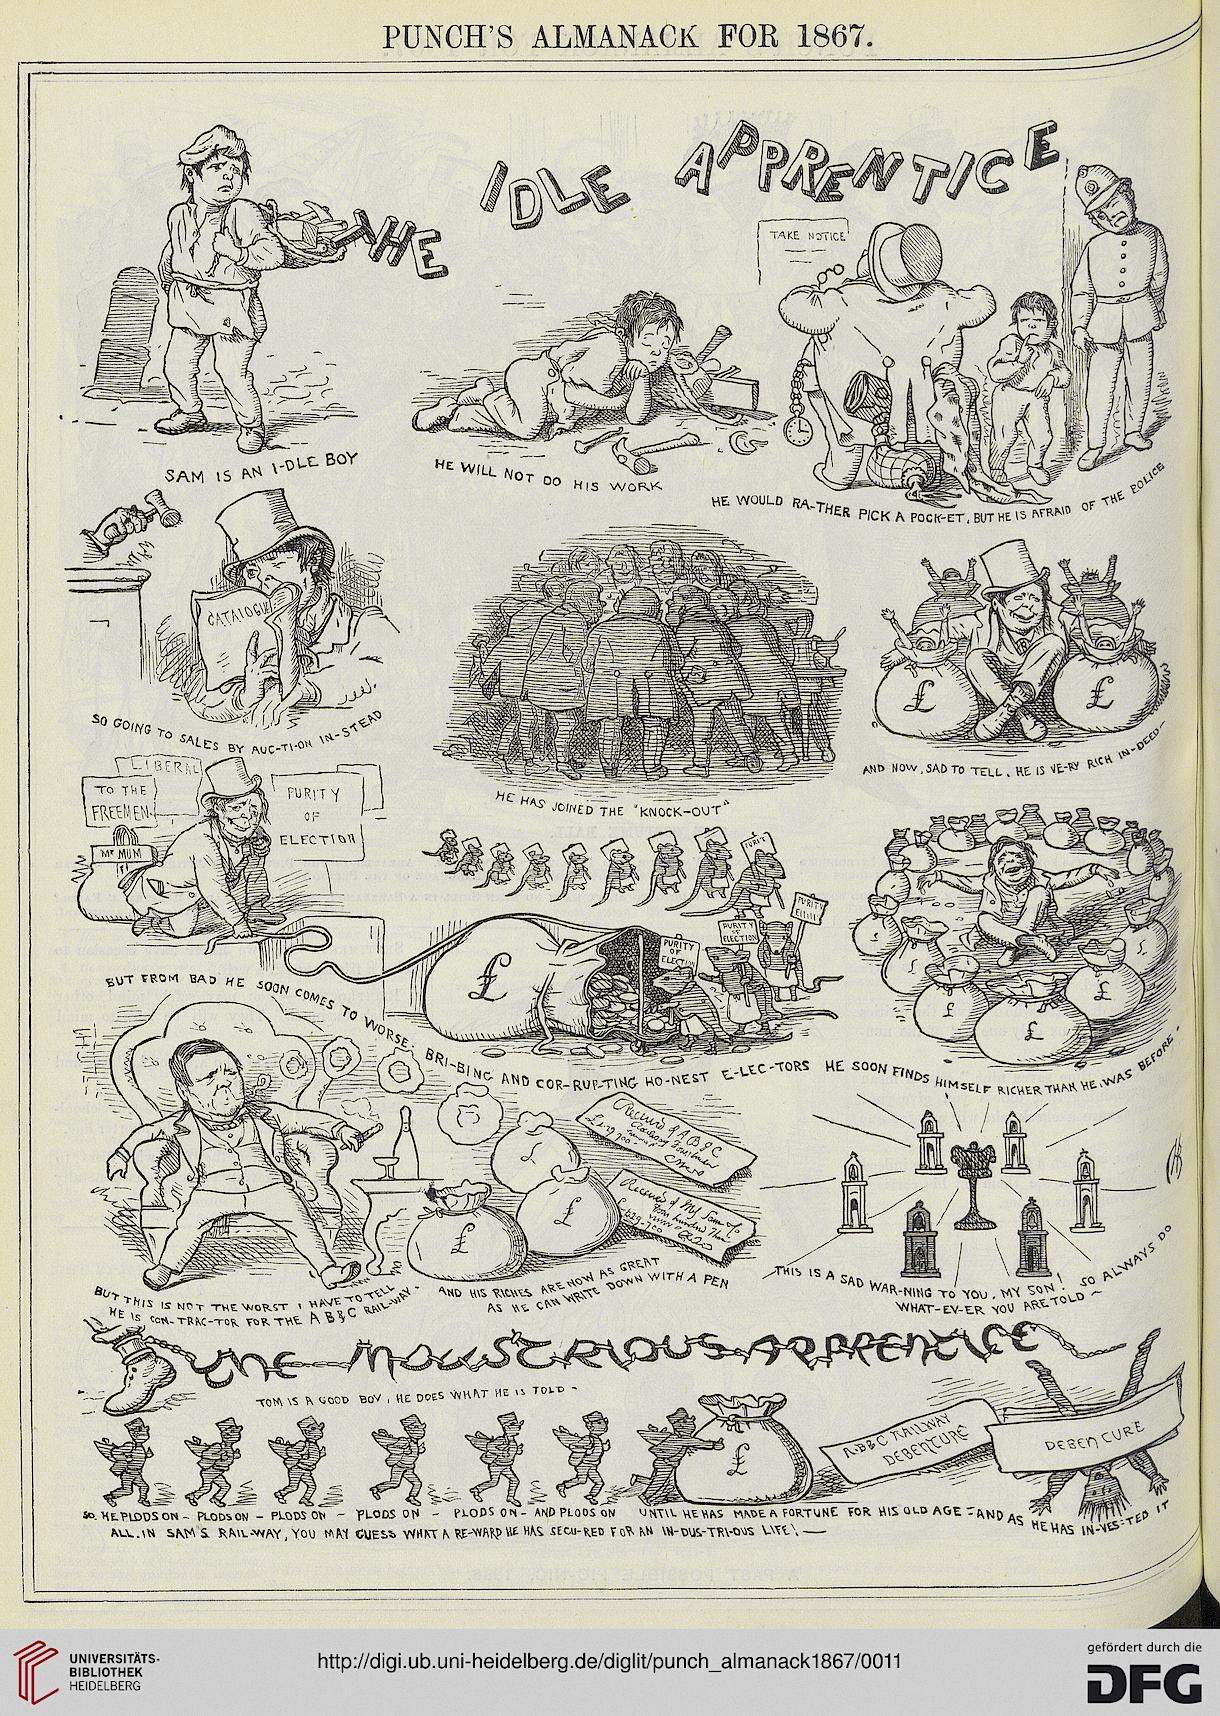 PUNCH'S ALMANACK FOR 1867.
THE IDLE APPRENTICE
TAKE NOTICE
SAM IS AN I-DLE BOY
HE WILL NOT DO HIS WORK
HE WOULD RA-THER PICK A POCK-ET, BUT HE IS AFRAID OF THE POLICE
CATALOGUE
SO GOING TO SALES BY AUC-TI-ON IN-STEAD
HE HAS JOINED THE "KNOCK-OUT"
£
£
AND NOW, SAD TO TELL, HE IS VE-RY RICH IN-DEED-
LIBERAL
TO THE
FREEMEN
PURITY
OF
ELECTION
Mr MUM
PURITY
PURITY
PURITY
OF
ELECTION
PURITY
OF
ELECTION
£
£
£
£
£
BUT FROM BAD HE SOON COMES TO WORSE, BRI-BING AND COR-RUP-TING HO-NEST E-LEC-TORS
HE SOON FINDS HIMSELF RICHER THAN HE WAS BEFORE-
£
£
£
Received of A B & C
Received of
BUT THIS IS NOT THE WORST I HAVE TO TELL
HE IS CON-TRAC-TOR FOR THE A B & C RAIL-WAY-
AND HIS RICHES ARE NOW AS GREAT
AS HE CAN WRITE DOWN WITH A PEN
THIS IS A SAD WAR-NING TO YOU, MY SON! SO ALWAYS DO
WHAT-EV-ER YOU ARE TOLD ~
THE INDUSTRIOUS APPRENTICE
TOM IS A GOOD BOY, HE DOES WHAT HE IS TOLD -
£
A.B&C RAILWAY
DEBENTURE
DEBENTURE
SO. HE PLODS ON - PLODS ON - PLODS ON - PLODS ON - PLODS ON - AND PLODS ON UNTIL HE HAS MADE A FORTUNE FOR HIS OLD AGE - AND AS HE HAS IN-VES-TED IT
ALL. IN SAM'S RAIL-WAY, YOU MAY GUESS WHAT A RE-WARD HE HAS SECU-RED FOR AN IN-DUS-TRI-OUS LIFE! —
UNIVERSITÄTS-
BIBLIOTHEK
HEIDELBERG
http://digi.ub.uni-heidelberg.de/diglit/punch_almanack1867/0011
gefördert durch die
DFG